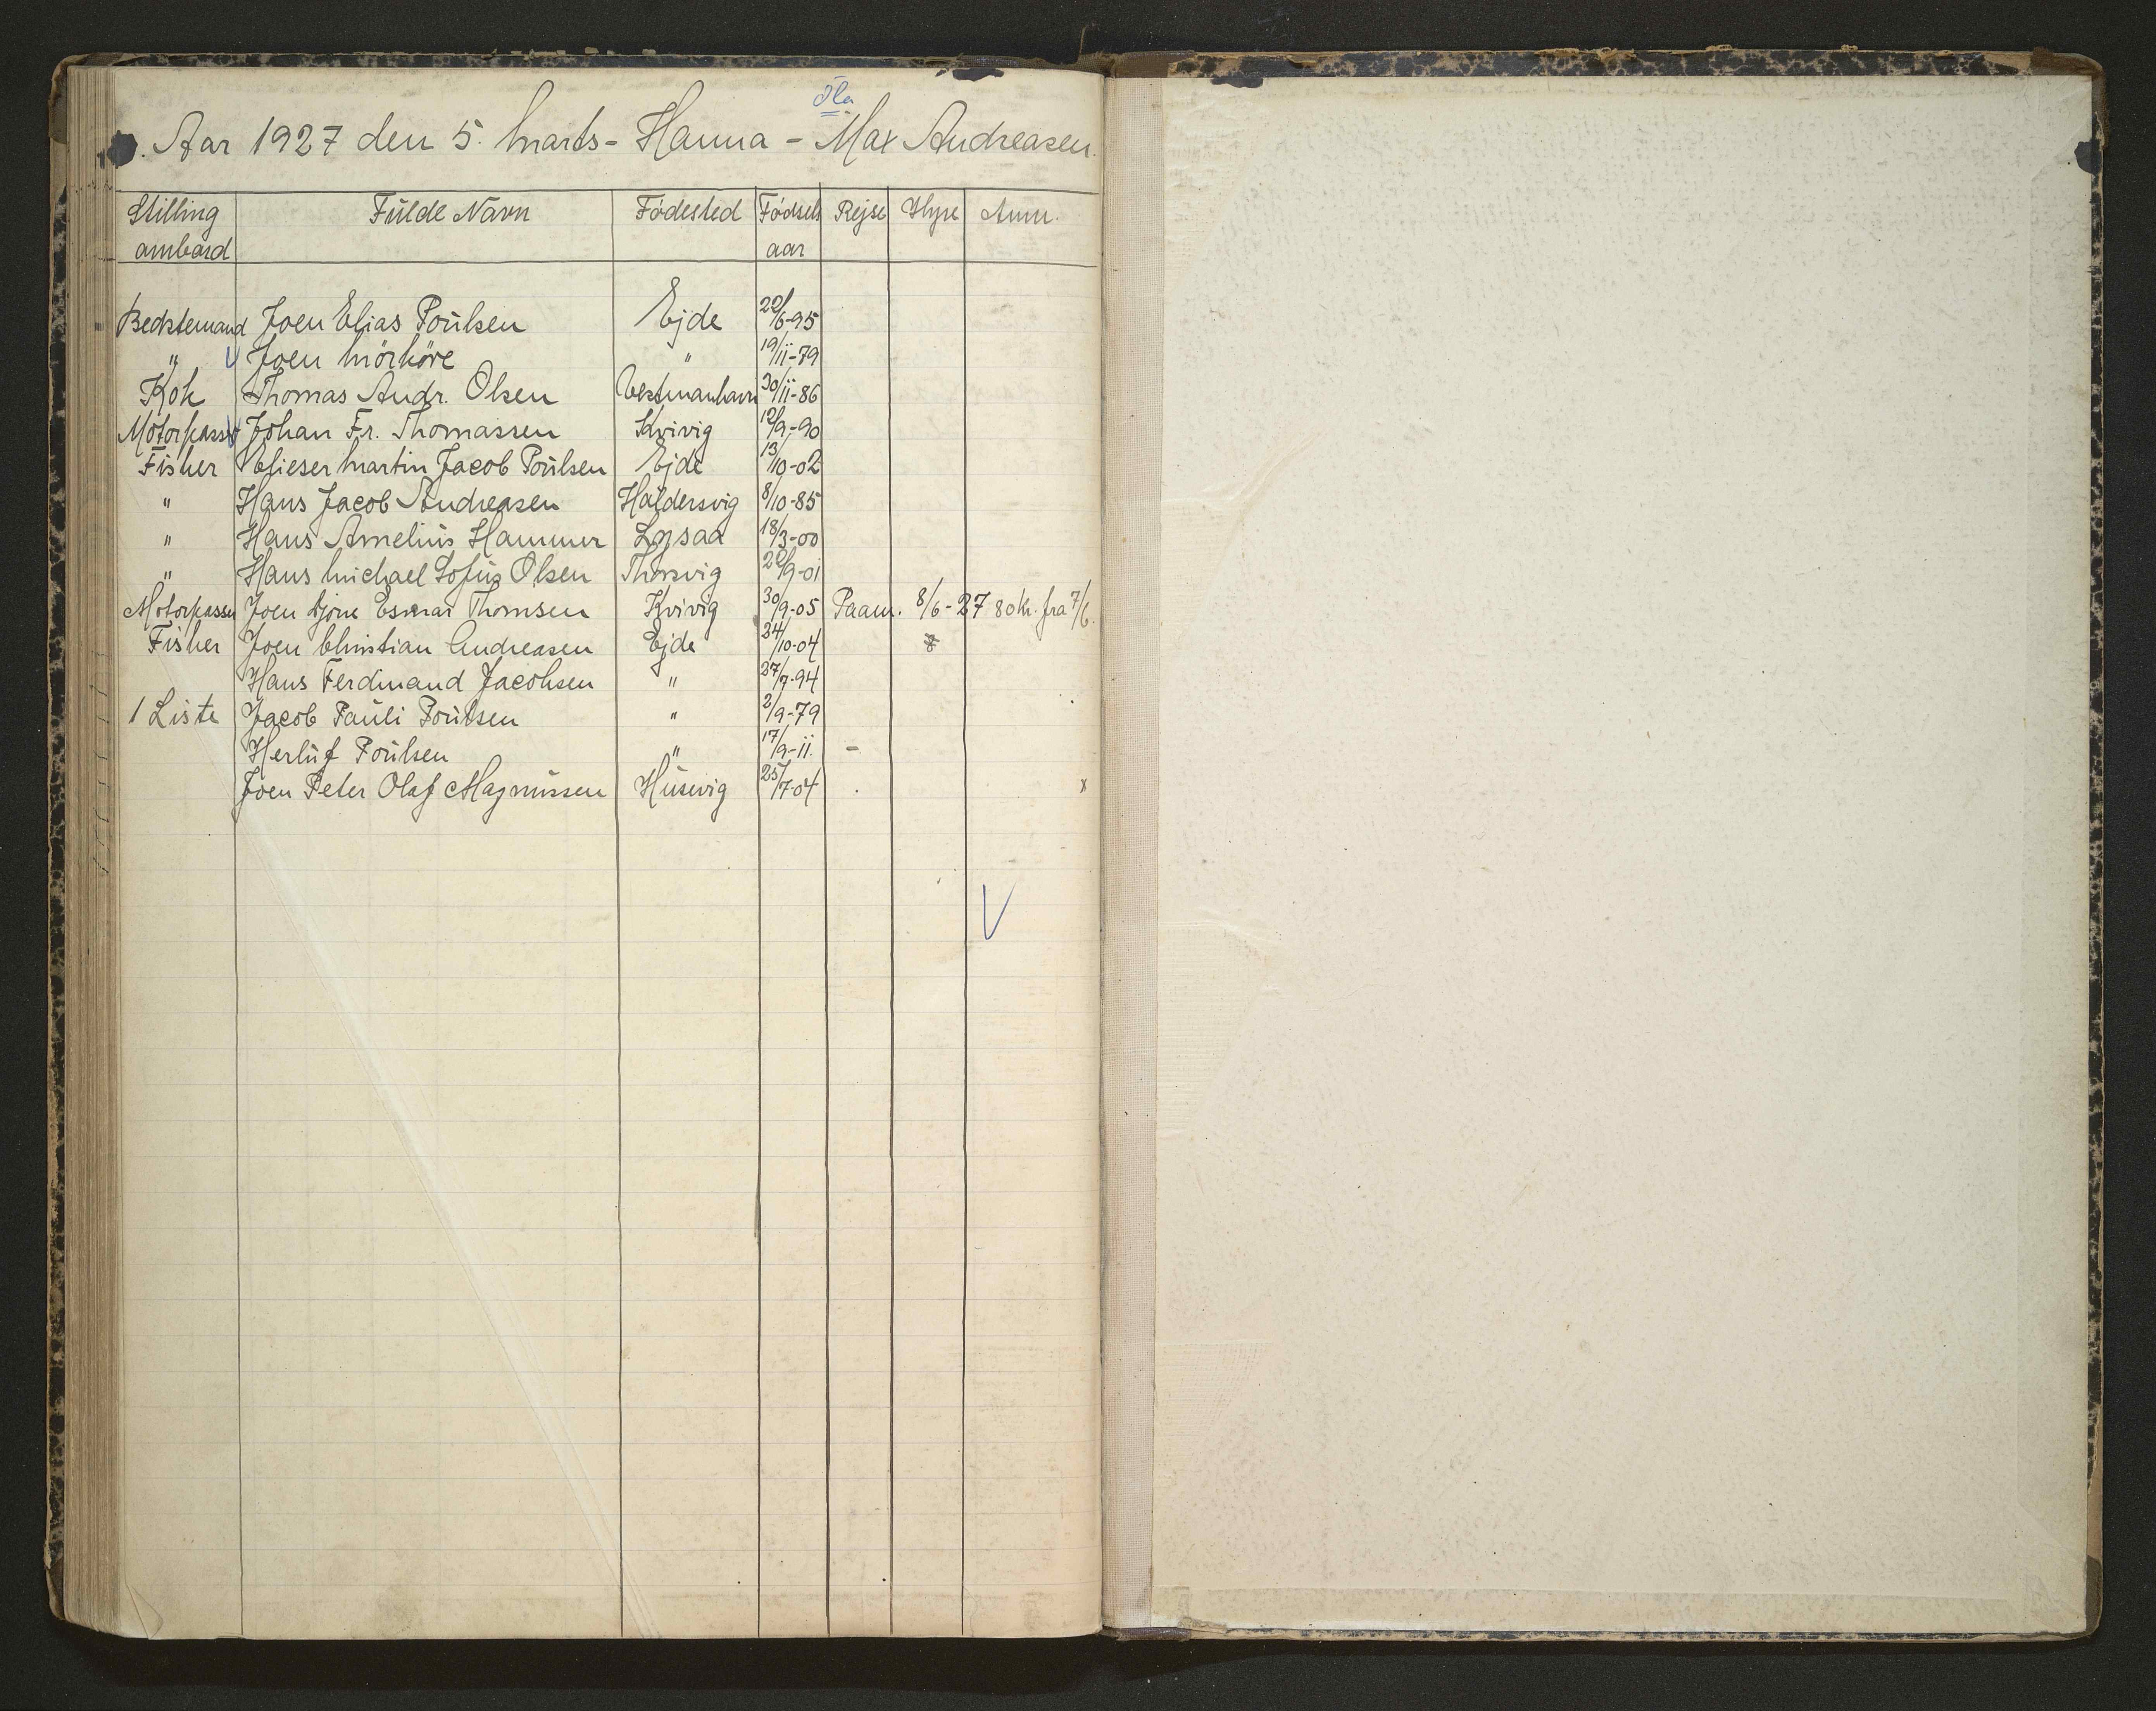 Aar 1927 den 5. Marts - Hanna - Max Andreasen.
Stilling ombord Fulde Navn Fødested Fødsels aar Rejse Hyre Anm.
Bedstemand Joen Elias Poulsen Ejde 22/6-95
" Joen Mørkøre " 19/11-79
Kok Thomas Andr. Olsen Vestmanhavn 30/11-86
Motorpasser Johan Fr. Thomassen Kvivig 12/9-90
Fisker Elieser Martin Jacob Poulsen Ejde 13/10-02
" Hans Jacob Andreasen Haldersvig 8/10-85
" Hans Amelius Hammer Lysaa 18/3-00
" Hans Michael Sofus Olsen Thorsvig 22/9-01
Motorpasser Joen Esmar Thomsen Kvivig 30/9-05 Paam. 8/6-27 80 Kr. fra 7/6.
Fisker Joen Christian Andreasen Ejde 24/10-04
Hans Ferdinand Jacobsen " 27/7-94
1 Liste Jacob Pauli Poulsen " 2/9-79
Herluf Poulsen " 17/9-11. -
Joen Peter Olaf Magnussen Husevig 25/7-04 x